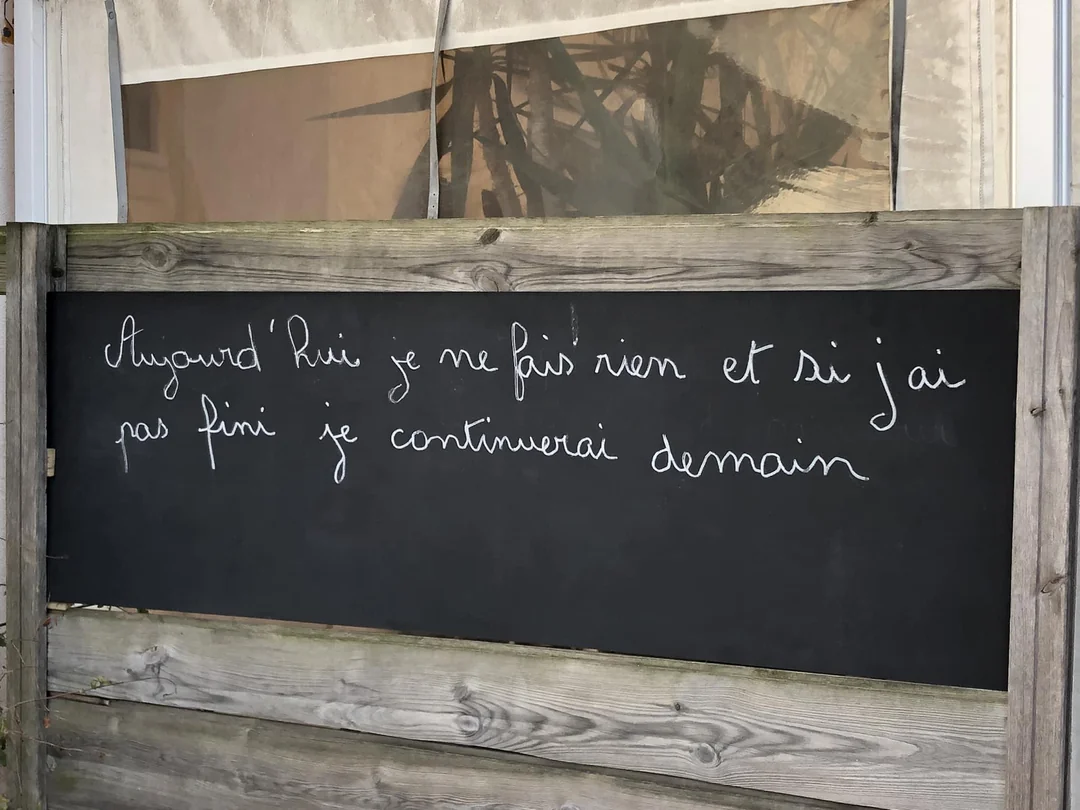 Aujourd'hui je ne fais rien et si j'ai
pas fini je continuerai demain